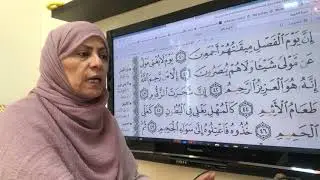 إِنَّ يَوْمَ ٱلْفَصْلِ مِيقَٰتُهُمْ أَجْمَعِينَ ٤٠ يَوْمَ لَا يُغْنِى مَوْلًى
عَن مَّوْلًى شَيْـًٔا وَلَا هُمْ يُنصَرُونَ ٤١ إِلَّا مَن رَّحِمَ ٱللَّهُ
إِنَّهُۥ هُوَ ٱلْعَزِيزُ ٱلرَّحِيمُ ٤٢ إِنَّ شَجَرَتَ ٱلزَّقُّومِ ٤٣
طَعَامُ ٱلْأَثِيمِ ٤٤ كَٱلْمُهْلِ يَغْلِى فِى ٱلْبُطُونِ ٤٥ كَغَلْىِ
ٱلْحَمِيمِ ٤٦ خُذُوهُ فَٱعْتِلُوهُ إِلَىٰ سَوَآءِ ٱلْجَحِيمِ